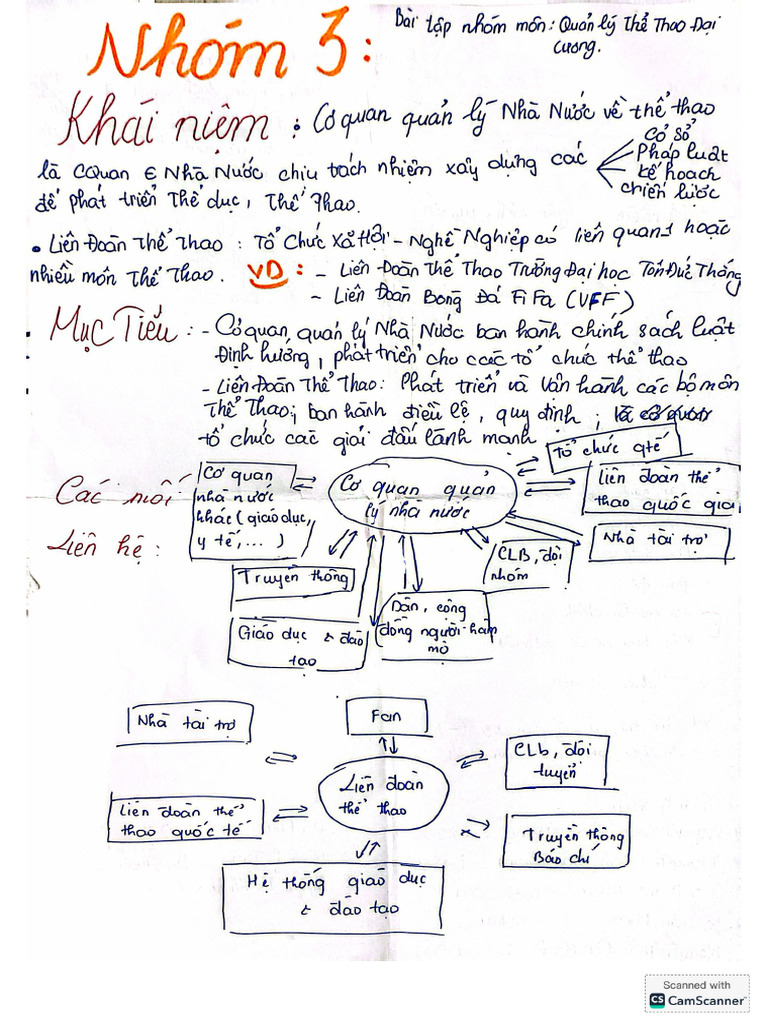 Nhóm 3 :
Bài tập nhóm môn : Quản lý Thể Thao Đại
cương.
Khái niệm : Cơ quan quản lý Nhà Nước về thể thao
là CQuan ∈ Nhà Nước chịu trách nhiệm xây dựng các
Cơ sở
Pháp luật
kế hoạch
chiến lược
để phát triển Thể dục, Thể Thao.
• Liên Đoàn Thể Thao : Tổ Chức Xã Hội - Nghề Nghiệp có liên quan 1 hoặc
nhiều môn Thể Thao. VD : - Liên Đoàn Thể Thao Trường Đại học Tôn Đức Thắng
- Liên Đoàn Bóng Đá FiFa (VFF)
Mục Tiêu : - Cơ quan, quản lý Nhà Nước ban hành chính sách luật
Định hướng, phát triển cho các tổ chức thể thao
- Liên Đoàn Thể Thao : Phát triển và Vận hành các bộ môn
Thể Thao ; ban hành điều lệ, quy định ;
tổ chức các giải đấu lành mạnh
Các mối
Liên hệ :
Cơ quan
nhà nước
khác (giáo dục,
y tế, ...)
Cơ quan quản
lý nhà nước
Tổ chức qtế
liên đoàn thể
thao quốc gia
Nhà tài trợ
CLB, đội
nhóm
Truyền thông
Giáo dục & đào
tạo
Dân, cộng
đồng người hâm
mộ
Nhà tài trợ
Fan
CLb, đội
tuyển
Liên đoàn
thể thao
Liên đoàn thể
thao quốc tế
Truyền thông
Báo chí
Hệ thống giáo dục
& đào tạo
Scanned with
CS CamScanner